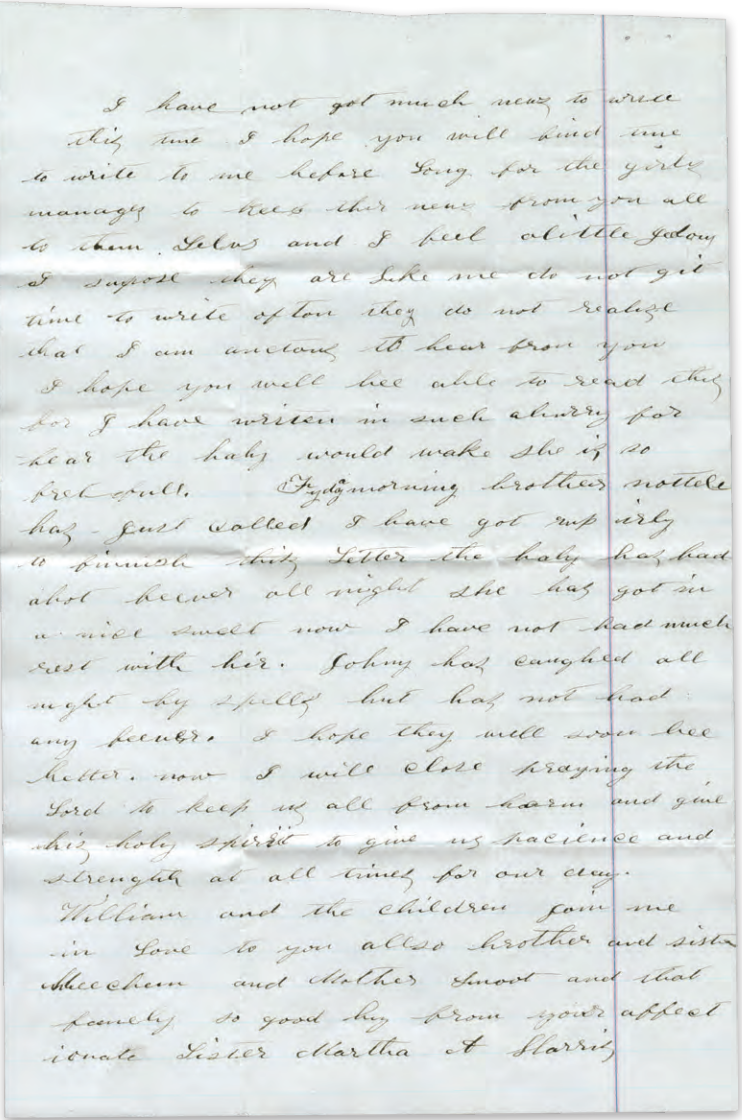 I have not got much news to write
this time I hope you will find time
to write to me before Long for the girls
manages to keep thir news from you all
to them Selvs and I feel alittle
I supose they are Like me do not git
time to write ofton they do not realize
that I am to hear from you
I hope you well bee able to read this
for I have writen in such ahurry for
fear the baby would wake she is so
fret full. morning brother
has just called I have got up irly
to finnish this Letter the baby has had
ahot feever all night she has got in
a nice swelt now I have not had much
rest with hir. Johny has caughed all
night by spells but has not had
any feever. I hope they will soon bee
better. now I will close praying the
Lord to keep us all from harm and give
his holy spirit to give us pacience and
strength at all times for our day.
William and the children join me
in Love to you allso brother and sister
Meechem and Mother Smoot and that
famely so good by from your affect
ionate Sister Martha A Harris